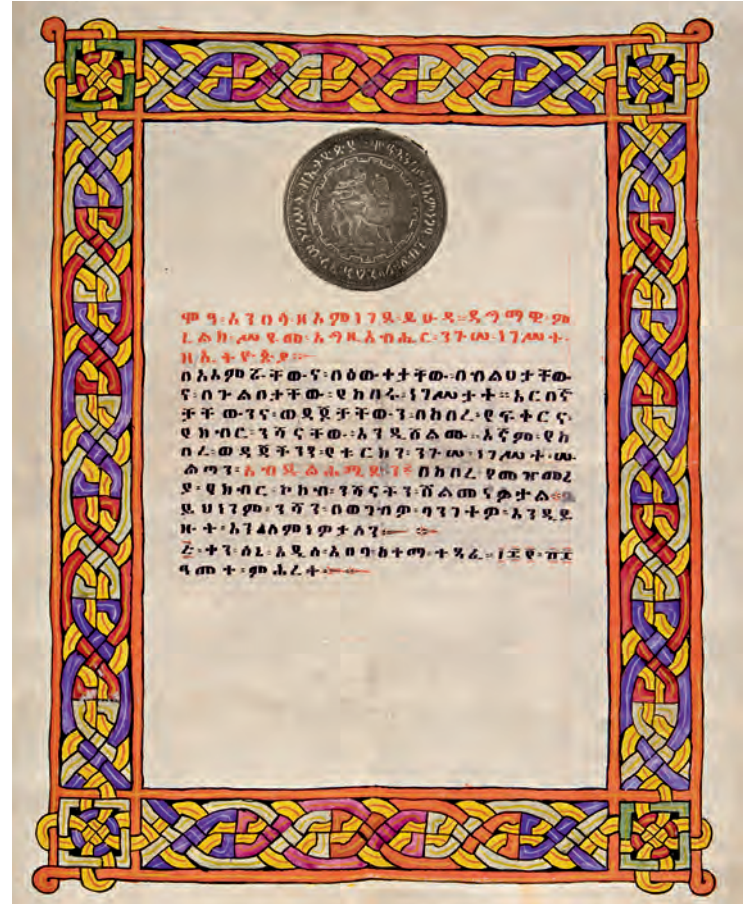 ሞዓ፡አንበሳ፡ዘእምነገደ፡ይሁዳ፡ዳግማዊ፡ም
ኒልክ፡ሥዩመ፡እግዚአብሔር፡ንጉሠ፡ነገሥት፡
ዘኢትዮጵያ።
በእእምሯቸው፡ና፡በዕውቀታቸው፡በብልሀታቸው
ና፡በጉልበታቸው፡የከበሩ፡ነገሥታት፡፡አርበኛ
ቻቸውንና፡ወዳጆቻቸውን፡በከበረ፡የፍቅርና፡
የክብር፡ንሻናቸው፡እንዲሸልሙ፡እኛም፡የከ
በረ፡ወዳጃችንን፡የቱርክን፡ንጉሠ፡ነገሥት፡ሡ
ልጣን፡አብዱልሐሚድ፡ን፡በከበረ፡የመዠመረ
ያ፡የክብር፡ኮከብ፡ንሻናችን፡ሸልመናዎታል።
ይህንንም፡ንሻን፡በወገብዎ፡ባንገትዎ፡እንዲይ
ዙት፡እንለምነዎታለን፡
ቀን፡ሰኔ፡አዲስ፡አበባ፡ከተማ፡ተጻፈ።
ዓመተ፡ምሕረት፡